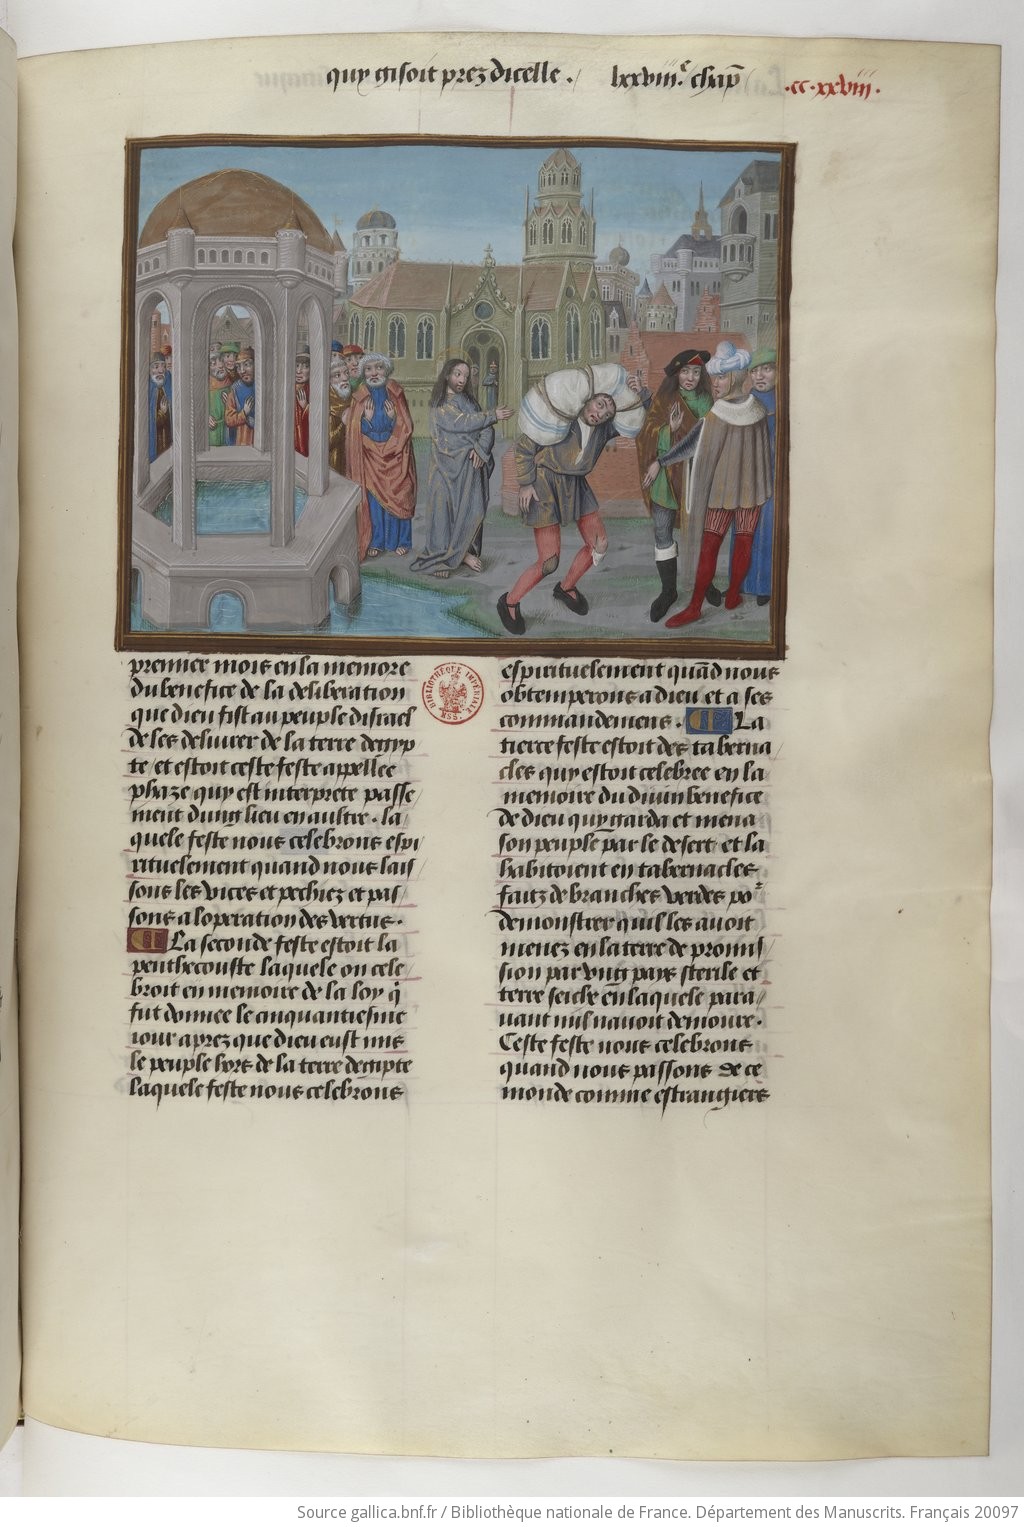 quy gisoit prez dicelle . lxxviii.e chap̄ .cc.xxviii.
premier mois en la memore
du benefice de la deliberation
que dieu fist au peuple disrael
de les deliurer de la terre degyp
te / et estoit ceste feste appellee
phaze quy est interprete passe
ment dung lieu en aultre . la
quele feste nous celebrons espi
rituelement quand nous lais
sons les vices et pechiez et pas
sons a loperation des vertus .
La seconde feste estoit la
penthecouste laquele on cele
broit en memoire de la loy q̇
fut donnee le cinquantiesme
iour aprez que dieu eust mis
le peuple hors de la terre degipte
laquele feste nous celebrons
espirituelement quād nous
obtemperons a dieu et a ses
commandemens . La
tierce feste estoit des taberna
cles quy estoit celebree en la
memoire du diuin benefice
de dieu quy garda et mena
son peuple par le desert et la
habitoient en tabernacles
faitz de branches verdes por
demonstrer quil les auoit
menez en la terre de promis
sion par vng pays sterile et
terre seiche en laquele para
uant nul nauoit demoure .
Ceste feste nous celebrons
quand nous passons de ce
monde comme estrangiers
BIBLIOTHÈQUE IMPÉRIALE MSS.
Source gallica.bnf.fr / Bibliothèque nationale de France. Département des Manuscrits. Français 20097